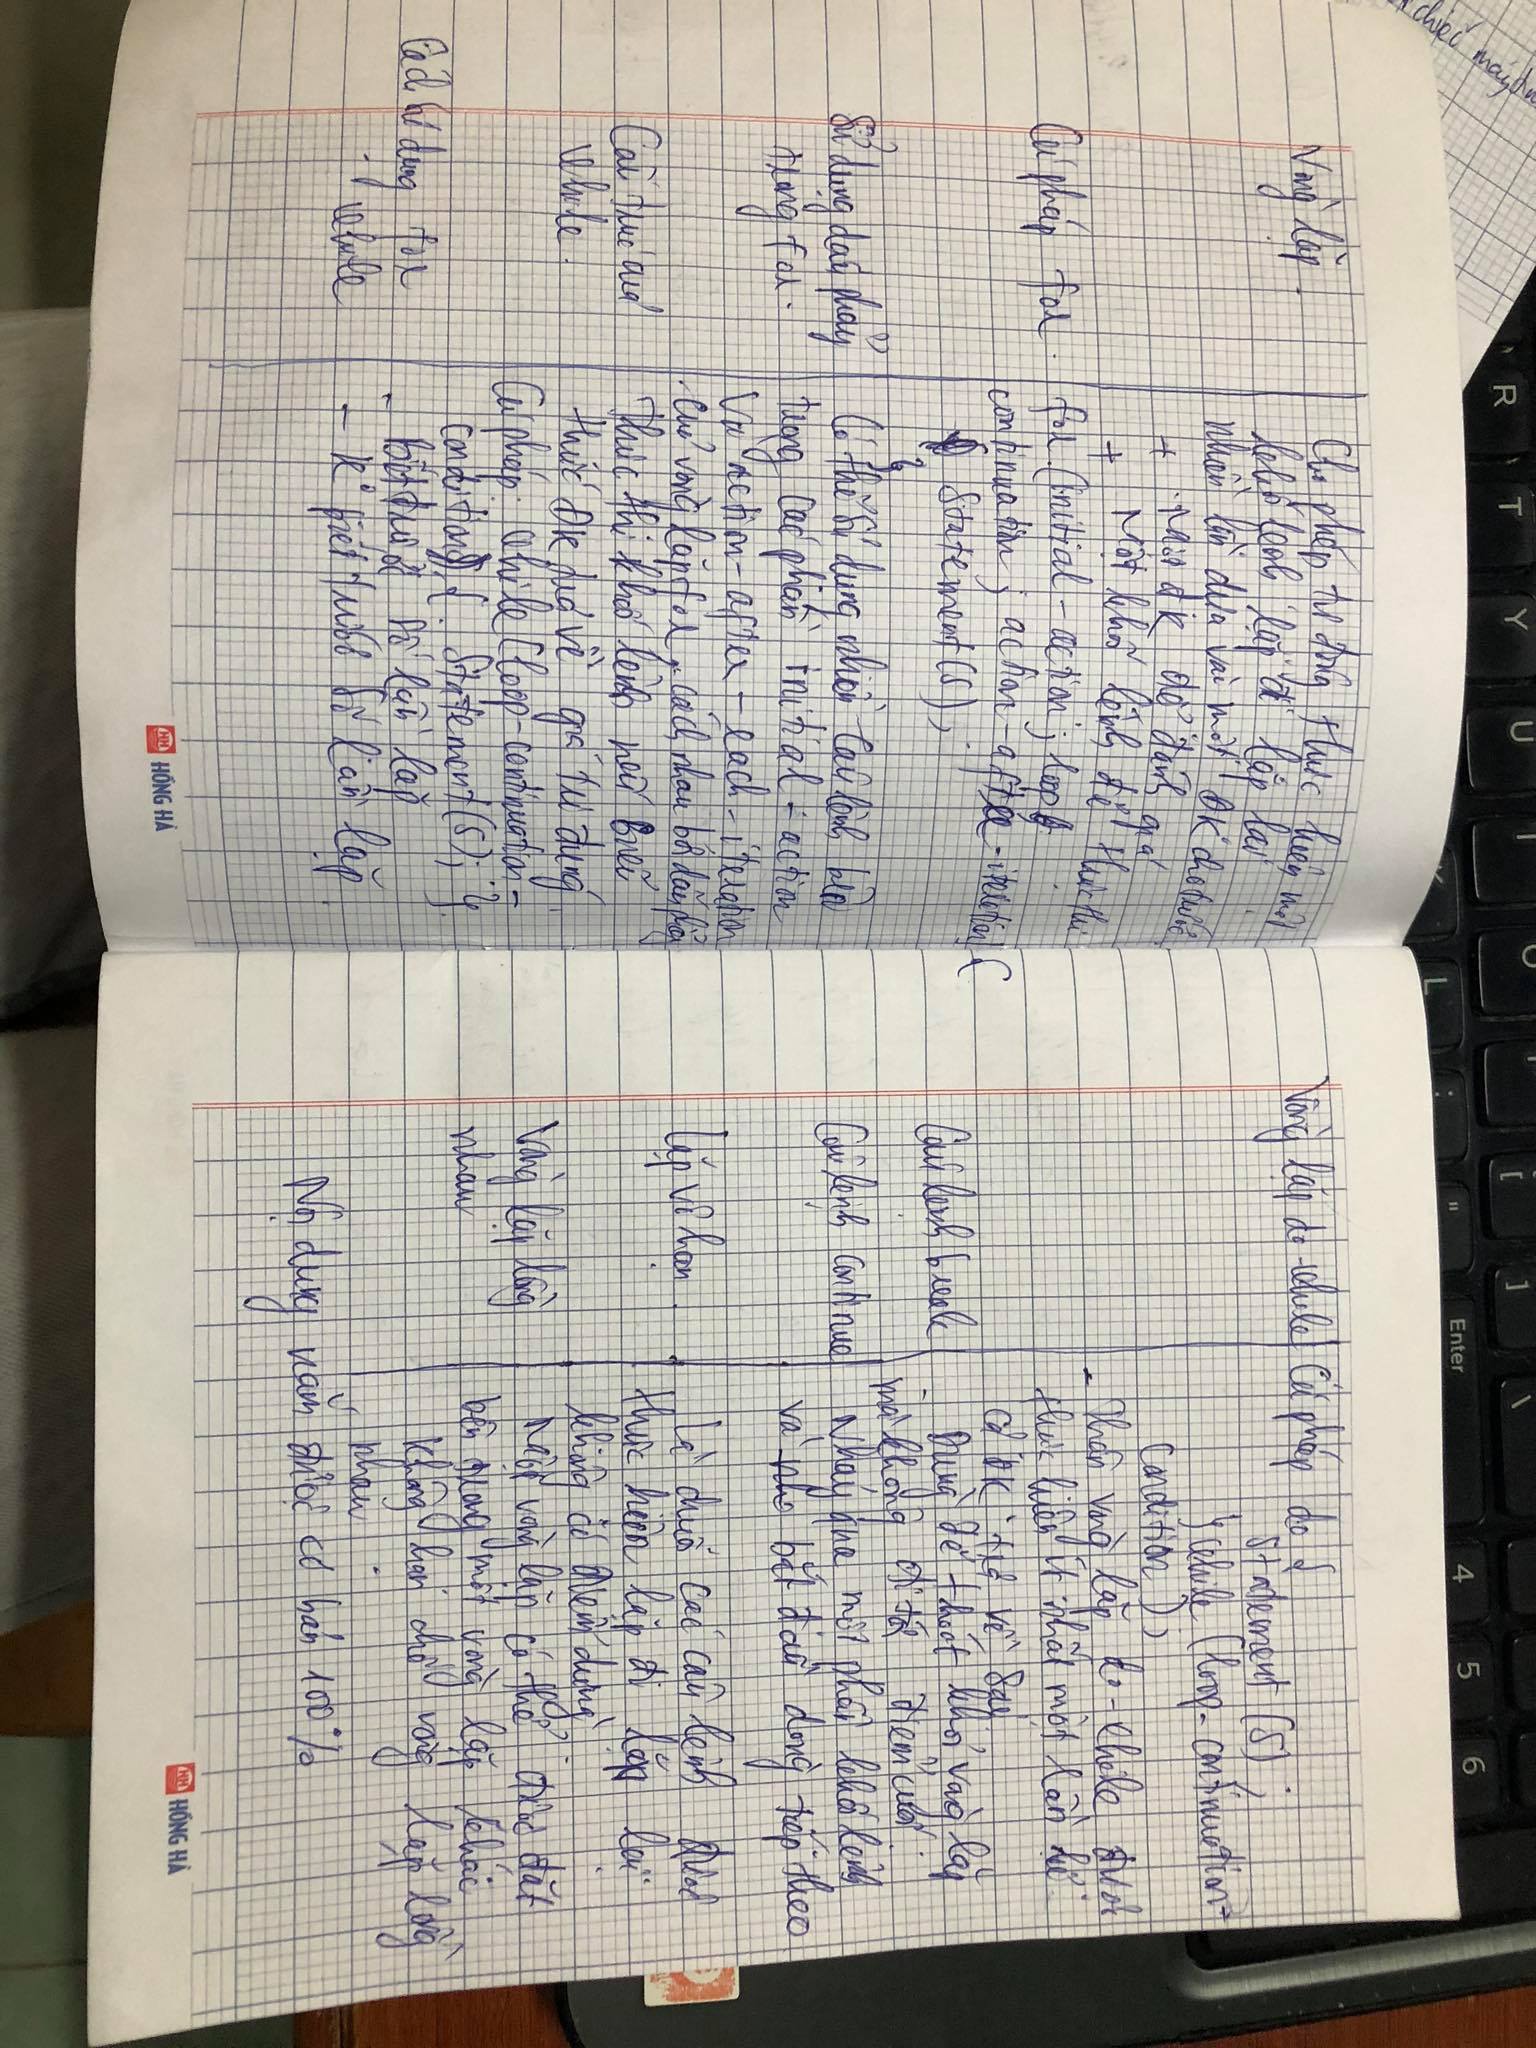 Vòng lặp.
Cho phép tự động thực hiện một
khối lệnh lặp đi lặp lại
nhiều lần dựa vài một ĐK cho trước
+ Một đk để đánh giá
+ Một khối lệnh để thực thi
Cú pháp for.
for (initial-action; loop
continuation; action-after-iteration {
Statement(s);
}
Sử dụng dấu phẩy
trong for.
Có thể sử dụng nhiều câu lệnh
trong các phần initial-action
Và action-after-each-iteration
của vòng lặp for, cách nhau bởi dấu phẩy
Cấu trúc của
while.
Thực thi khối lệnh nếu biểu
thức ĐK trả về giá trị đúng
Cú pháp: while (loop-continuation-
condition) { Statement(s); }
Cách sử dụng for
while
- biết trước số lần lặp
- Ko biết trước số lần lặp.
HỒNG HÀ
Vòng lặp do-while
Cú pháp do {
Statement(s);
} while (loop-continuation-
Condition)
- Thân vòng lặp do-while được
thực hiện ít nhất một lần kể
cả ĐK trả về Sai
Câu lệnh break
- Dùng để thoát khỏi vòng lặp
mà không đợi tới điểm cuối.
Câu lệnh continue
Nhảy qua một phần khối lệnh
và bắt đầu dòng tiếp theo
Lặp vô hạn.
Là chuỗi các câu lệnh được
thực hiện lặp đi lặp lại
không có điểm dừng.
Vòng lặp lồng
nhau
Một vòng lặp có thể được đặt
bên trong một vòng lặp khác
Không hạn chế vòng lặp lồng
nhau.
Nội dung nắm được cơ bản 100%
HỒNG HÀ
R
T
Y
U
O
L
:
;
"
[
]
\
Enter
4
5
6